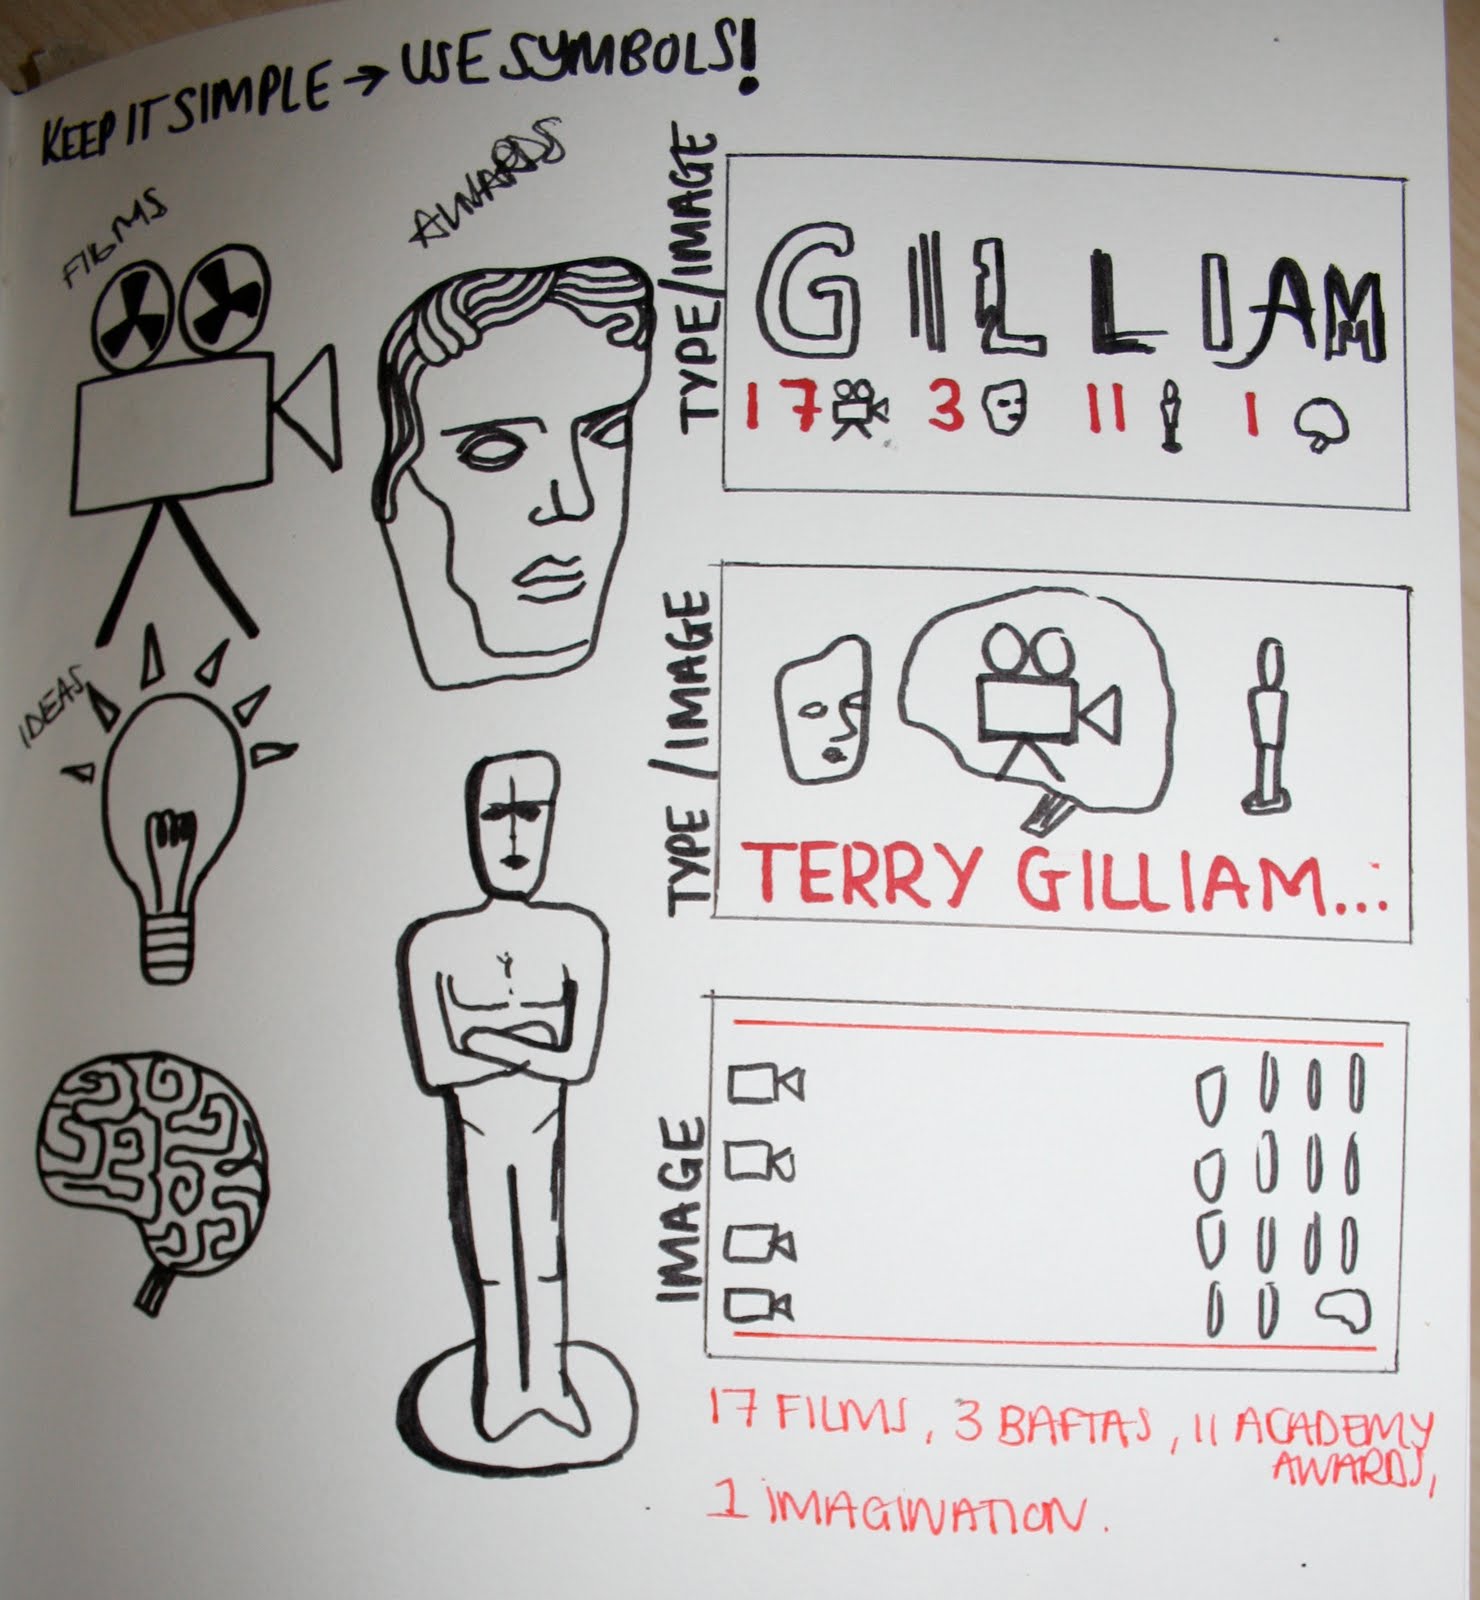 KEEP IT SIMPLE → USE SYMBOLS!
FILMS
AWARDS
IDEAS
TYPE/IMAGE
GILLIAM
17 3 11 1
TYPE/IMAGE
TERRY GILLIAM...
IMAGE
17 FILMS, 3 BAFTAS, 11 ACADEMY
AWARDS,
1 IMAGINATION.